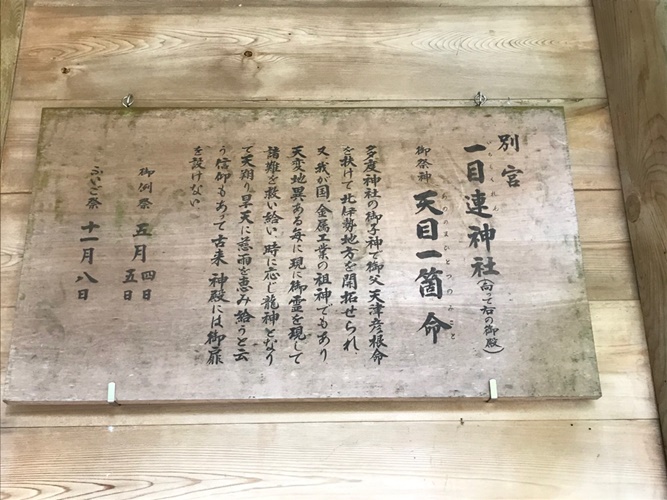 別宮
一目連神社(向って右の御殿)
いちもくれん
御祭神 天目一箇命
あめのまひとつのみこと
多度神社の御子神で御父天津彦根命
を扶けて北伊勢地方を開拓せられ、
又、我が国、金属工業の祖神でもあり
天変地異ある毎に現に御霊を現して
諸難を救い給い、時に応じ龍神となり
て天翔り旱天に慈雨を恵み給うと云
う信仰もあって古来 神殿には御扉
を設けない
御例祭 五月 四日
五日
ふいご祭 十一月八日